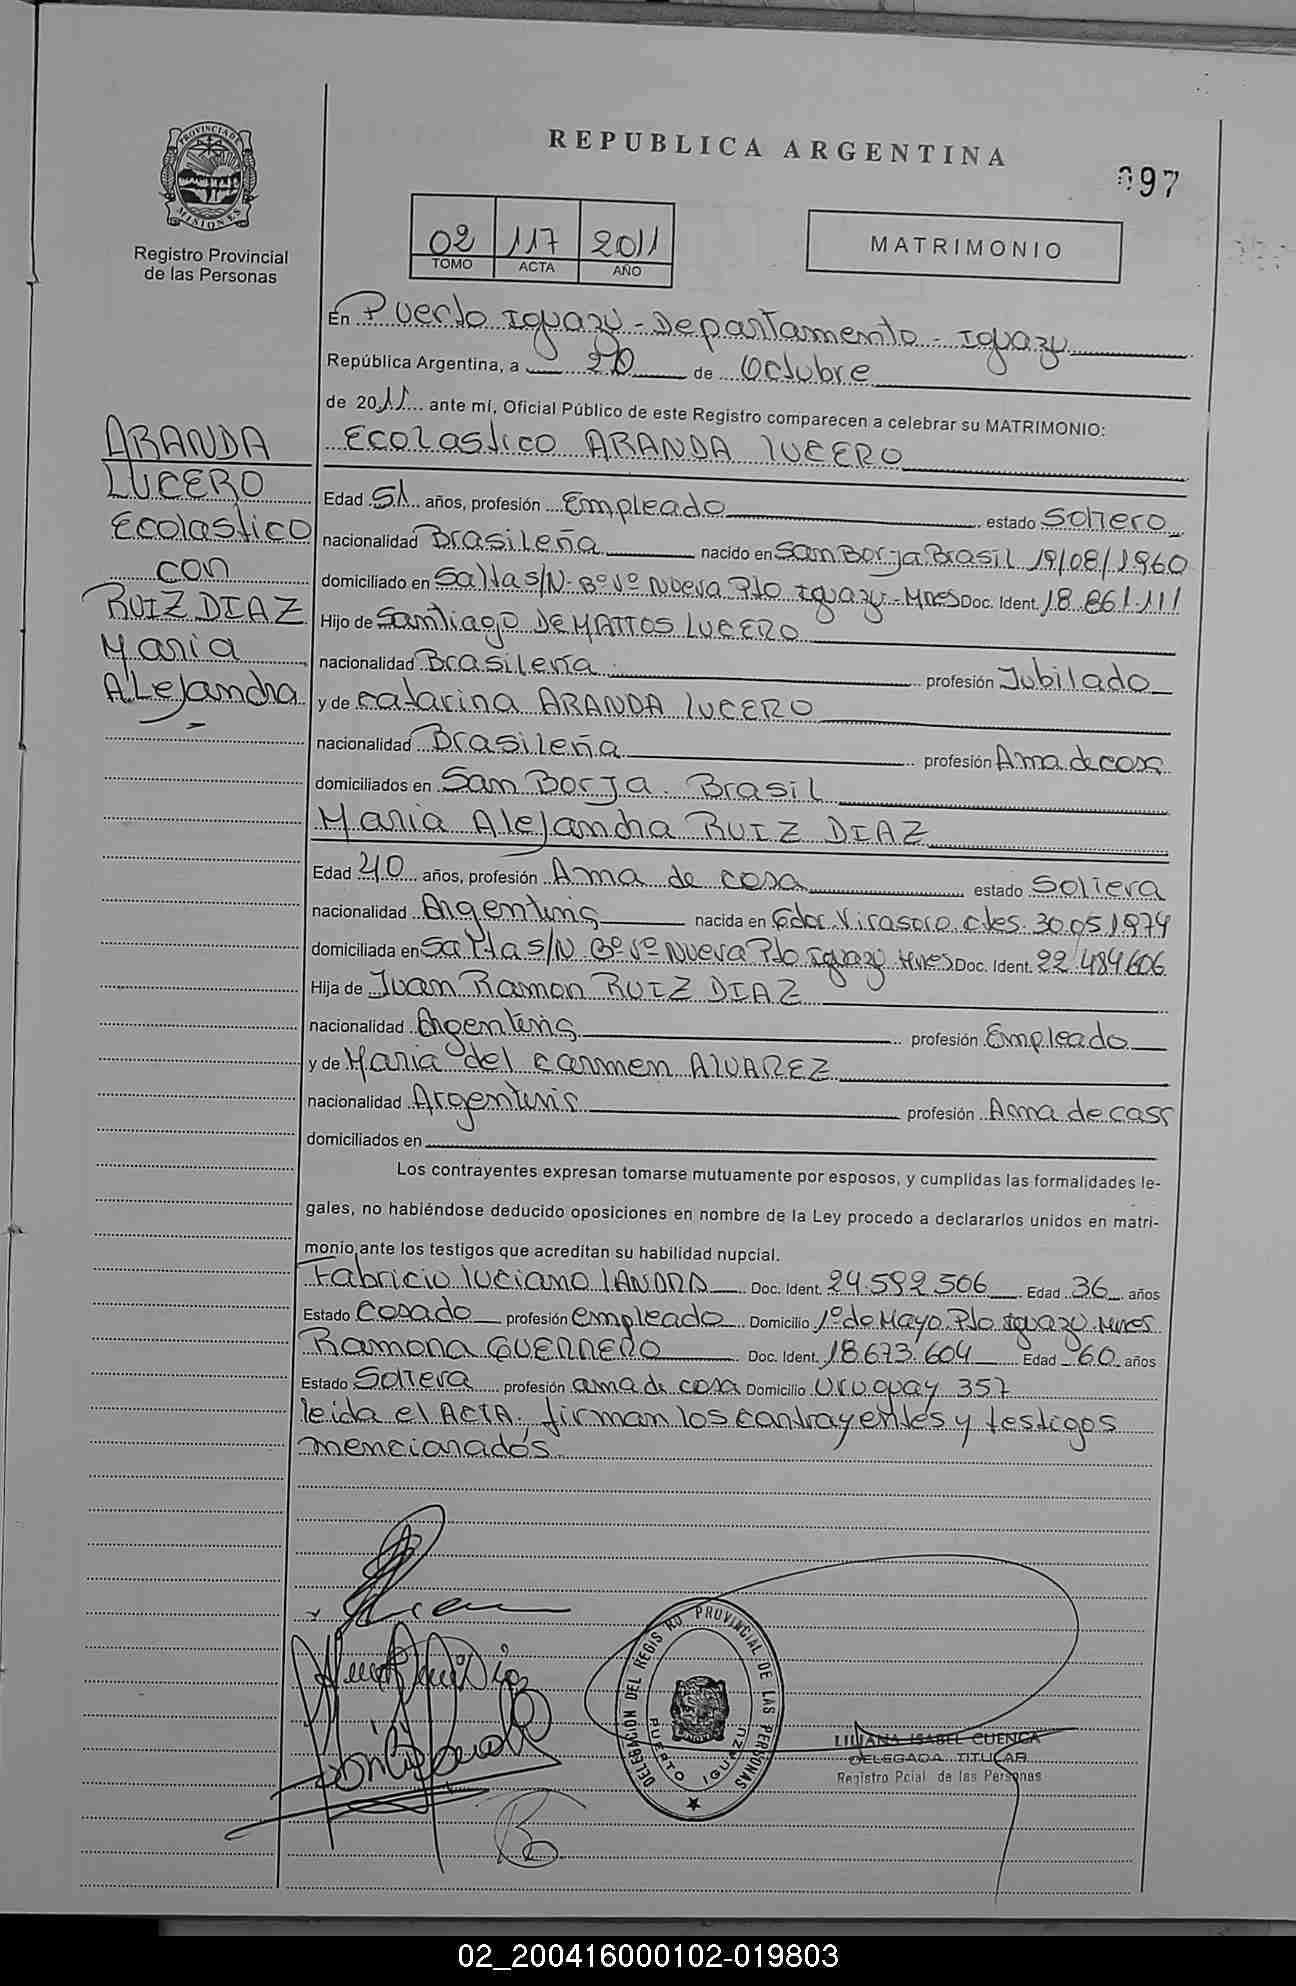 REPUBLICA ARGENTINA
097
PROVINCIA DE MISIONES
Registro Provincial
de las Personas
02 117 2011
TOMO ACTA AÑO
MATRIMONIO
En Puerto Iguazu - Departamento - Iguazu
República Argentina, a 20 de Octubre
de 2011 ante mí, Oficial Público de este Registro comparecen a celebrar su MATRIMONIO:
ARANDA
LUCERO
Ecolastico
con
RUIZ DIAZ
Maria
Alejandra
Ecolastico ARANDA LUCERO
Edad 51 años, profesión Empleado estado Soltero
nacionalidad Brasileña nacido en San Borja Brasil 19/08/1960
domiciliado en Salta S/N- Bº Vº Nueva Pto Iguazu - Mnes Doc. Ident. 18.861.111
Hijo de Santiago DE MATTOS LUCERO
nacionalidad Brasileña profesión Jubilado
y de Catarina ARANDA LUCERO
nacionalidad Brasileña profesión Ama de casa
domiciliados en San Borja. Brasil
Maria Alejandra RUIZ DIAZ
Edad 40 años, profesión Ama de casa estado Soltera
nacionalidad Argentina nacida en Gdor. Virasoro Ctes. 30.05.1974
domiciliada en Salta S/N Bº Vº Nueva Pto Iguazu Mnes Doc. Ident. 22.484.606
Hija de Juan Ramon RUIZ DIAZ
nacionalidad Argentina profesión Empleado
y de Maria del Carmen ALVAREZ
nacionalidad Argentina profesión Ama de casa
domiciliados en
Los contrayentes expresan tomarse mutuamente por esposos, y cumplidas las formalidades le-
gales, no habiéndose deducido oposiciones en nombre de la Ley procedo a declararlos unidos en matri-
monio ante los testigos que acreditan su habilidad nupcial.
Fabricio Luciano Doc. Ident. 24.592.506 Edad 36 años
Estado Casado profesión empleado Domicilio 1º de Mayo Pto Iguazu Mnes
Ramona GUERRERO Doc. Ident. 18.673.604 Edad 60 años
Estado Soltera profesión ama de casa Domicilio Uruguay 357
leida el ACTA, firman los contrayentes y testigos
mencionados
DELEGACION DEL REGISTRO PROVINCIAL DE LAS PERSONAS
PUERTO IGUAZU
LILIANA ISABEL CUENCA
DELEGADA TITULAR
Registro Pcial de las Personas
02_200416000102-019803